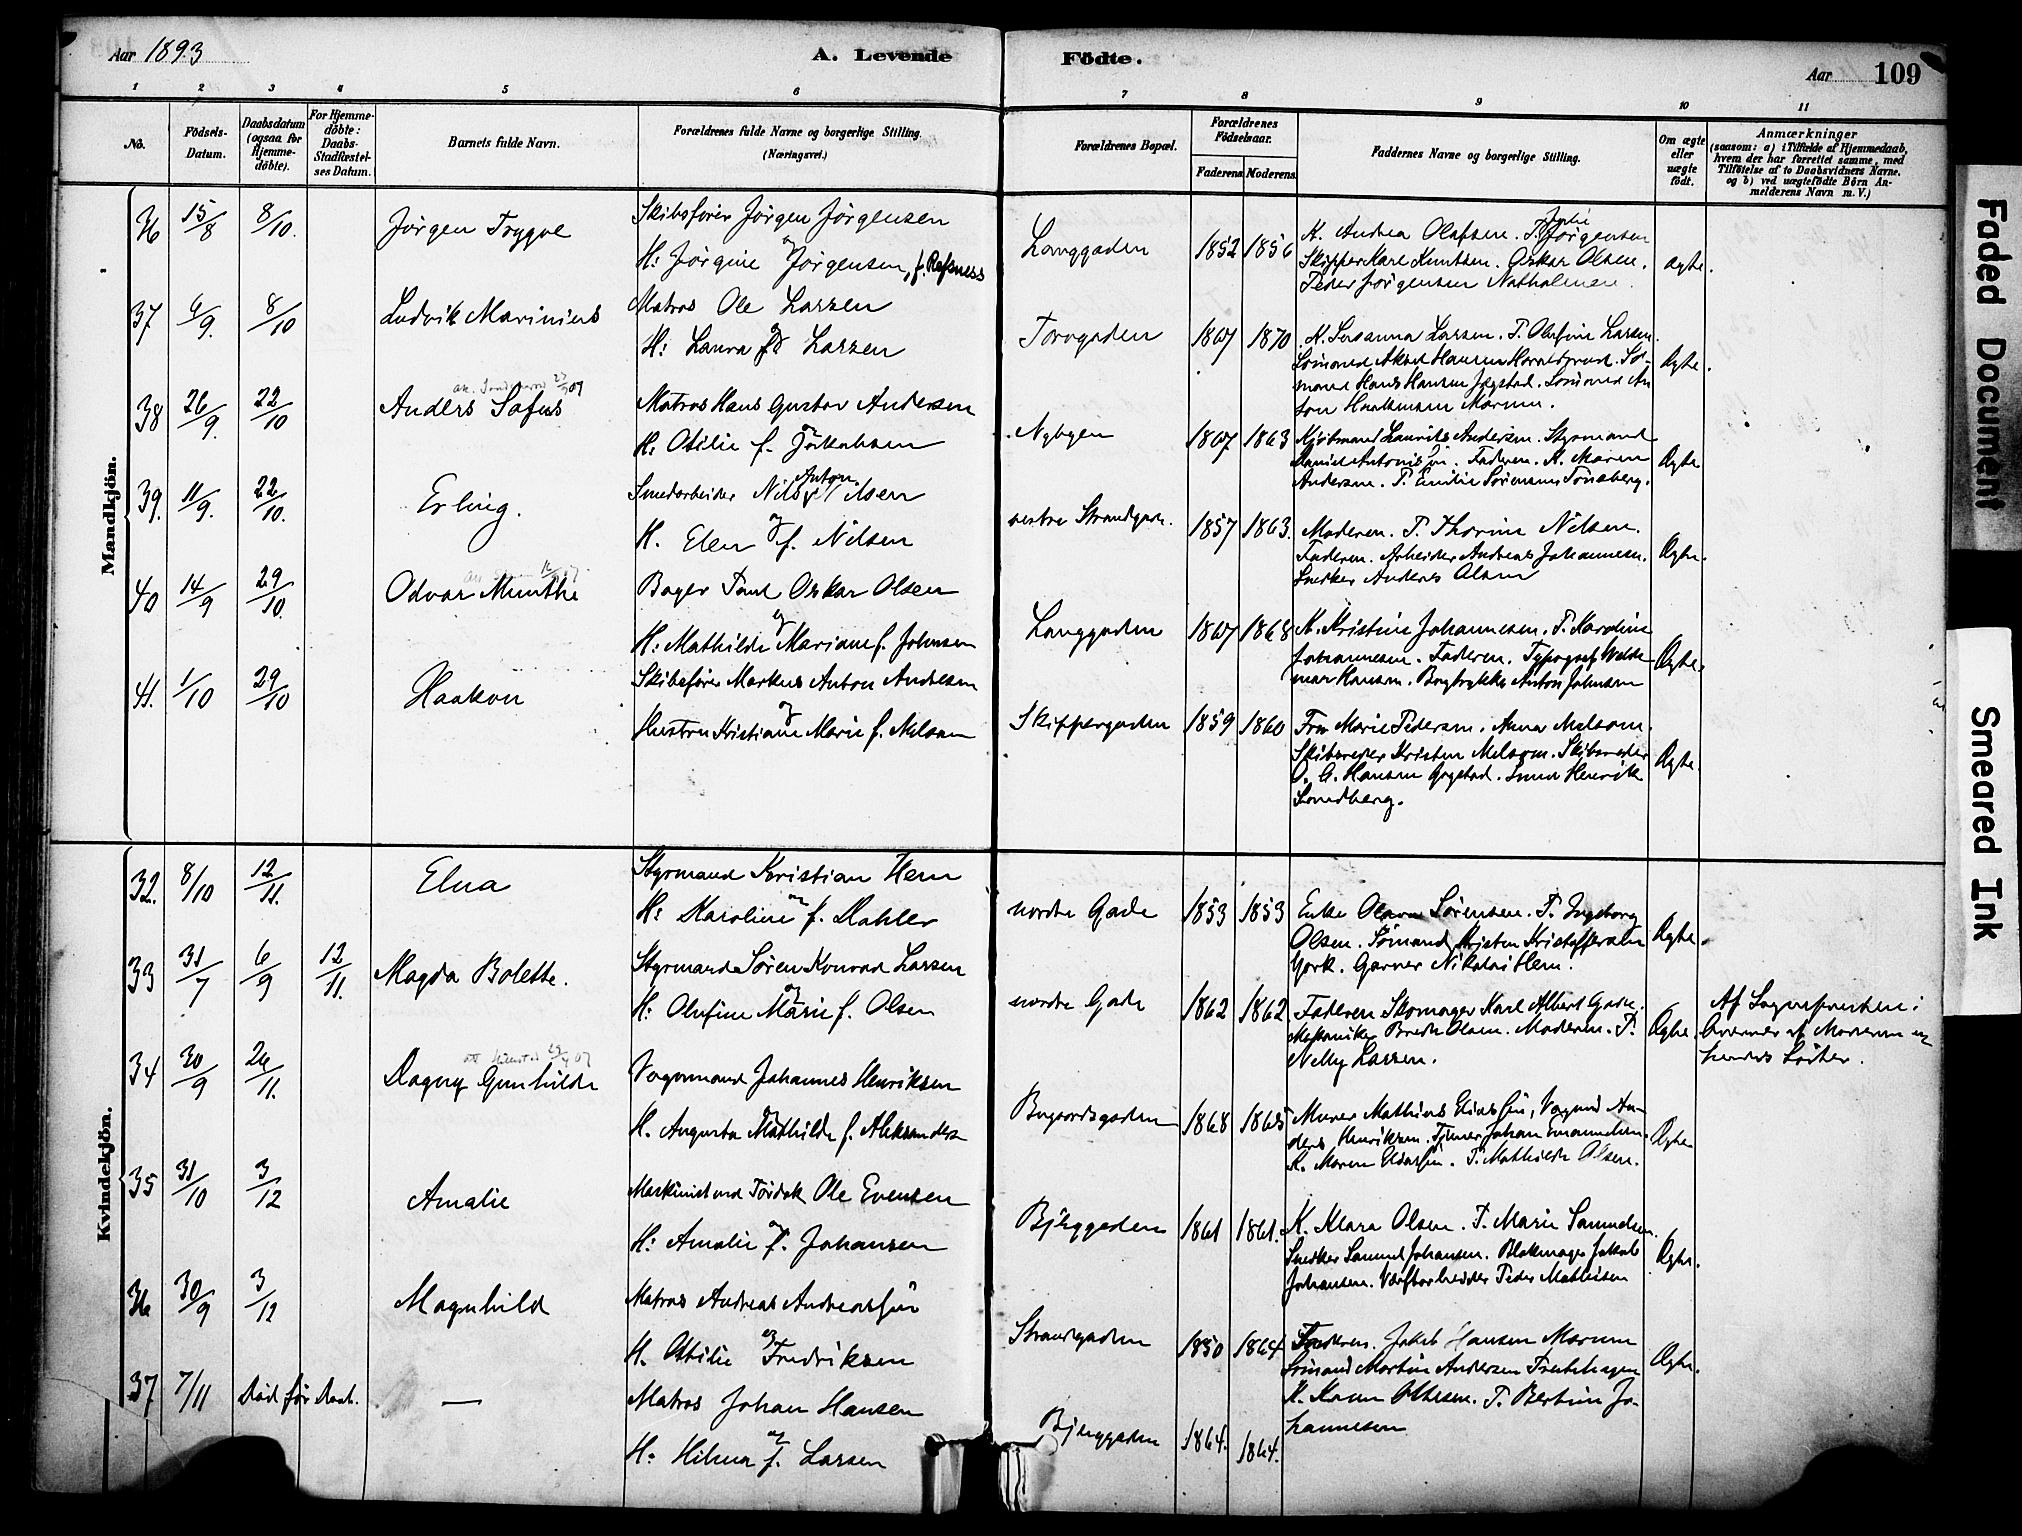 Aar 1893
A. Levende
Födte.
Aar 109
1 2 3 4 5 6 7 8 9 10 11
No.
Födsels-
Datum.
Daabsdatum
(ogsaa for
Hjemme-
döbte).
For Hjemme-
döbte:
Daabs-
Stadfæstel-
ses Datum.
Barnets fulde Navn.
Forældrenes fulde Navne og borgerlige Stilling.
(Næringsvei.)
Forældrenes Bopæl.
Forældrenes
Födselsaar.
Faderens Moderens
Faddernes Navne og borgerlige Stilling.
Om ægte
eller
uægte
födt.
Anmærkninger
(saasom: a) i Tilfælde af Hjemmedaab,
hvem der har forrettet samme, med
Tilföielse af to Daabsvidners Navne.
og b) ved uægtefödte Börn An-
melderens Navn m. V.)
Mandkjön.
36 15/8 8/10. Jörgen Trygve
Skibsförer Jörgen Jörgensen
og
H: Jörgine Jörgensen, f. Refsness
Langgaden 1852 1856
K. Andrea Olafsen. P. Jörgensen
Skipper Karl Knutsen. Oskar Olsen.
Peder Jörgensen
ægte.
37 6/9. 8/10 Ludvik Marinius
Matros Ole Larsen
H: Laura f. Larsen
Torvgaden 1867 1870
K. Susanna Larsen. P. Olufine Larsen.
Sömand Aksel Hansen. Sö-
mand Hans Hansen Jegstad. Sömand An
ton
Ægte.
38 26/9. 22/10 Anders Sofus
Matros Hans Gustav Andersen
og
H. Otilie f. Jakobsen
Nybyen 1867 1863
Laurits Andersen. Styrmand
Faderen. K. Maren
Andersen. P. Emilie Sörensen Tönsberg.
Ægte
39. 11/9. 22/10. Erling.
Anton
Smedarbeider Nils Olsen
og
H. Elen f. Nilsen
vestre Strandgade. 1857 1863.
Moderen. P. Thorine Nilsen.
Faderen. Arbeider Andreas Johannesen.
Snedker Anders Olsen
Ægte.
40 14/9 29/10. Odvar Munthe
Bager Paul Oskar Olsen
og
H: Mathilde Mariane f. Johnsen
Langgaden 1867 1868
K. Kristine Johannesen. P. Karoline
Johannesen. Faderen. Typograf Walde
mar Hansen. Bogtrykker Anton Johnsen
Ægte.
41. 1/10 29/10 Haakon
Skibsförer Markus Anton Andresen
og
Hustru Kristiane Marie f. Melsom
Skippergaden 1859 1860
Fru Marie Pedersen. Anna Melsom.
Skibsreder Kristen Melsom. Skibsreder
O. A. Hansen Gogstad. Henrik
Sundberg.
Ægte.
Kvindekjön.
32. 8/10 12/11. Elna
Styrmand Kristian Hem
og
H: Karoline f. Kahler
nordre Gade 1853 1853
Enke Olava Sörensen. P. Ingeborg
Olsen. Sömand Kristen Kristoffersen
York. Garver Nikolai Hem.
Ægte.
33 31/7 6/9 12/11. Magda Bolette.
Styrmand Sören Konrad Larsen
og
H: Olufine Marie f. Olsen
nordre Gade 1862 1862
Faderen Skomager Karl Albert Gade.
Mekaniker Olsen. Moderen. P.
Nelly Larsen.
Ægte.
Af Sognepresten i
Overvær af Moderen og
hendes Söster.
34 30/9 26/11. Dagny Gunhilde
Vognmand Johannes Henriksen
og
H. Augusta Mathilde f. Aleksandersen
Bugaardsgaden 1868 1865
Murer Mathias Eliassön, Vognmd An-
ders Henriksen. Johan Emanuelsen.
K. Maren Eliassön. P. Mathilde Olsen.
Ægte
35 31/10 3/12 Amalie
Maskinist ved Ole Evensen
og
H: Amalie f. Johansen
Bjerggaden 1861 1861.
K. Klara Olsen. P. Marie Samuelsen.
Snedker Samuel Johansen. Blokmager Jakob
Johansen. Værftarbeider Peder Mathisen
Ægte.
36 30/9 3/12 Magnhild
Matros Andreas Andreassön
og
H. Otilie Fredriksen
Strandgaden 1850 1864
Faderen. Jakob Hansen
Sömand Martin Andersen
K. Karen P. Bertine Jo-
hannesen
Ægte.
37 7/11 Död för Daab. —
Matros Johan Hansen
og
H. Hilma f. Larsen
Bjerggaden 1864. 1864.
Faded Document
Smeared Ink